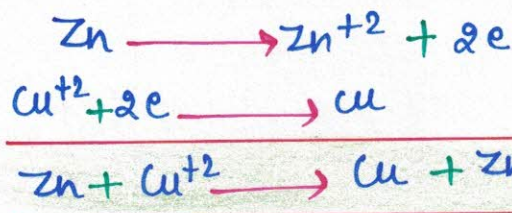 Zn → Zn+2 + 2e
Cu+2 + 2e → Cu
Zn + Cu+2 → Cu + Zn